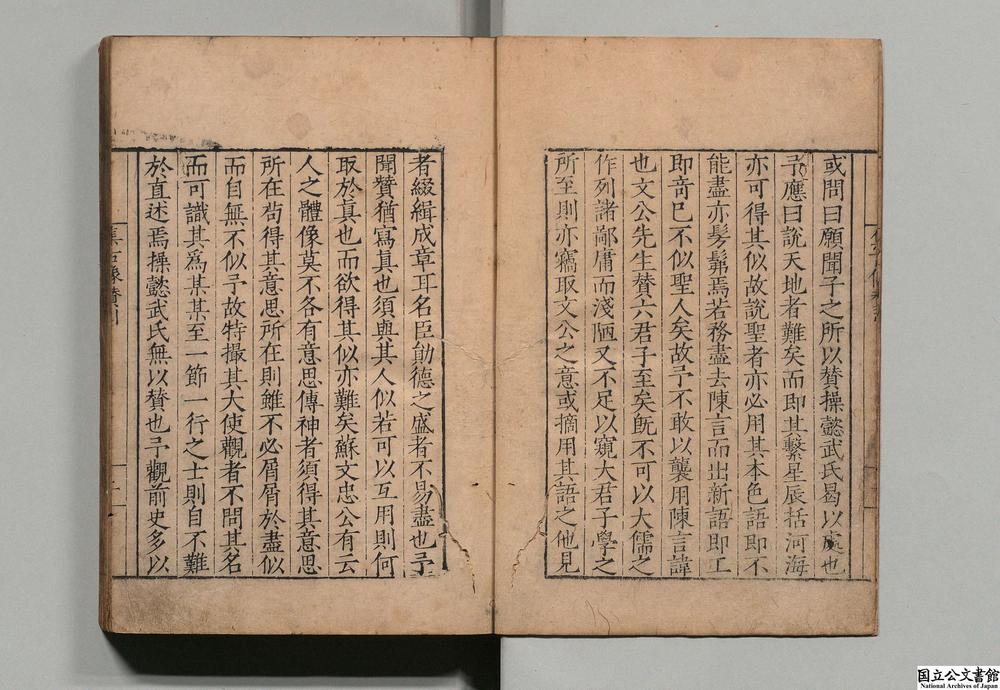 或問曰願聞子之所以賛操懿武氏曷以處也
予應曰說天地者難矣而即其繫星辰括河海
亦可得其似故說聖者亦必用其本色語即不
能盡亦髣髴焉若務盡去陳言而出新語即工
即奇已不似聖人矣故予不敢以襲用陳言諱
也文公先生賛六君子至矣旣不可以大儒之
作列諸鄙庸而淺陋又不足以窺大君子學之
所至則亦竊取文公之意或摘用其語之他見
者綴緝成章耳名臣勛德之盛者不易盡也予
聞贊猶寫真也須與其人似若可以互用則何
取於真也而欲得其似亦難矣蘇文忠公有云
人之體像莫不各有意思傳神者須得其意思
所在茍得其意思所在則雖不必屑屑於盡似
而自無不似予故特撮其大使觀者不問其名
而可識其爲某某至一節一行之士則自不難
於直述焉操懿武氏無以賛也予觀前史多以
国立公文書館
National Archives of Japan